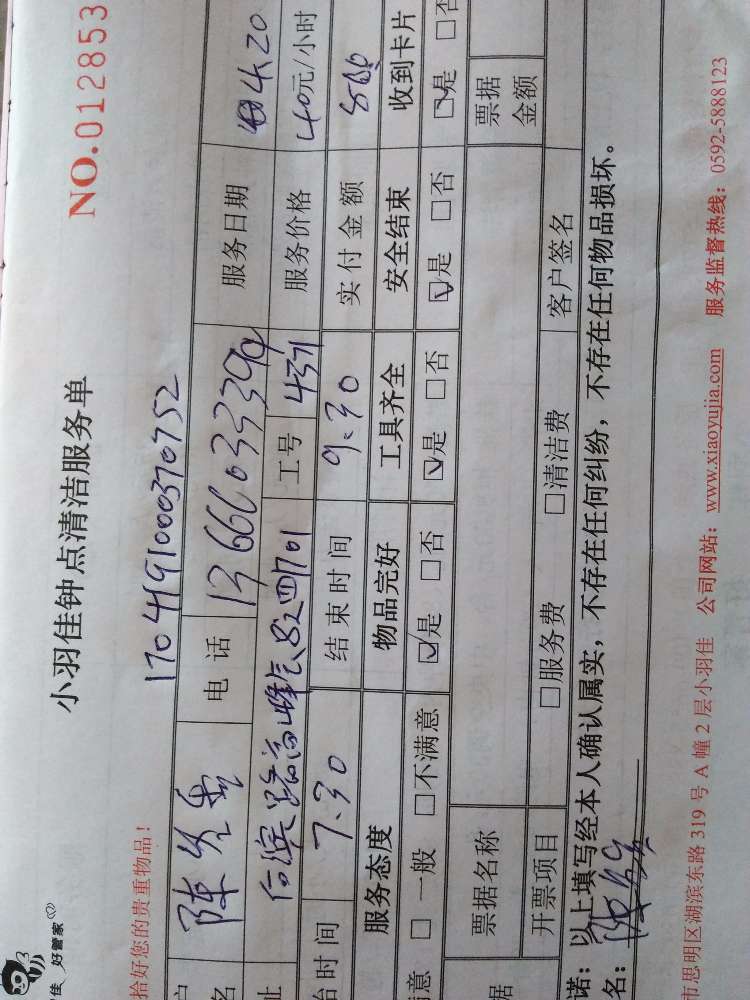 佳 好管家
NO.012853
小羽佳钟点清洁服务单
拾好您的贵重物品！
1704191000370752
户
名 陈 电话 服务日期 4.20
址 路 701 工号 4371 服务价格 40元/小时
台时间 7.30 结束时间 9.30 实付金额
服务态度 物品完好 工具齐全 安全结束 收到卡片
满意 □ 一般 □不满意 ☑是 □否 ☑是 □否 ☑是 □否 ☑是 □否
票据名称 票据金额
据 开票项目 □服务费 □清洁费 客户签名
诺：以上填写经本人确认属实，不存在任何纠纷，不存在任何物品损坏。
名：
市思明区湖滨东路 319 号 A 幢 2 层小羽佳 公司网站：www.xiaoyujia.com 服务监督热线：0592-5888123